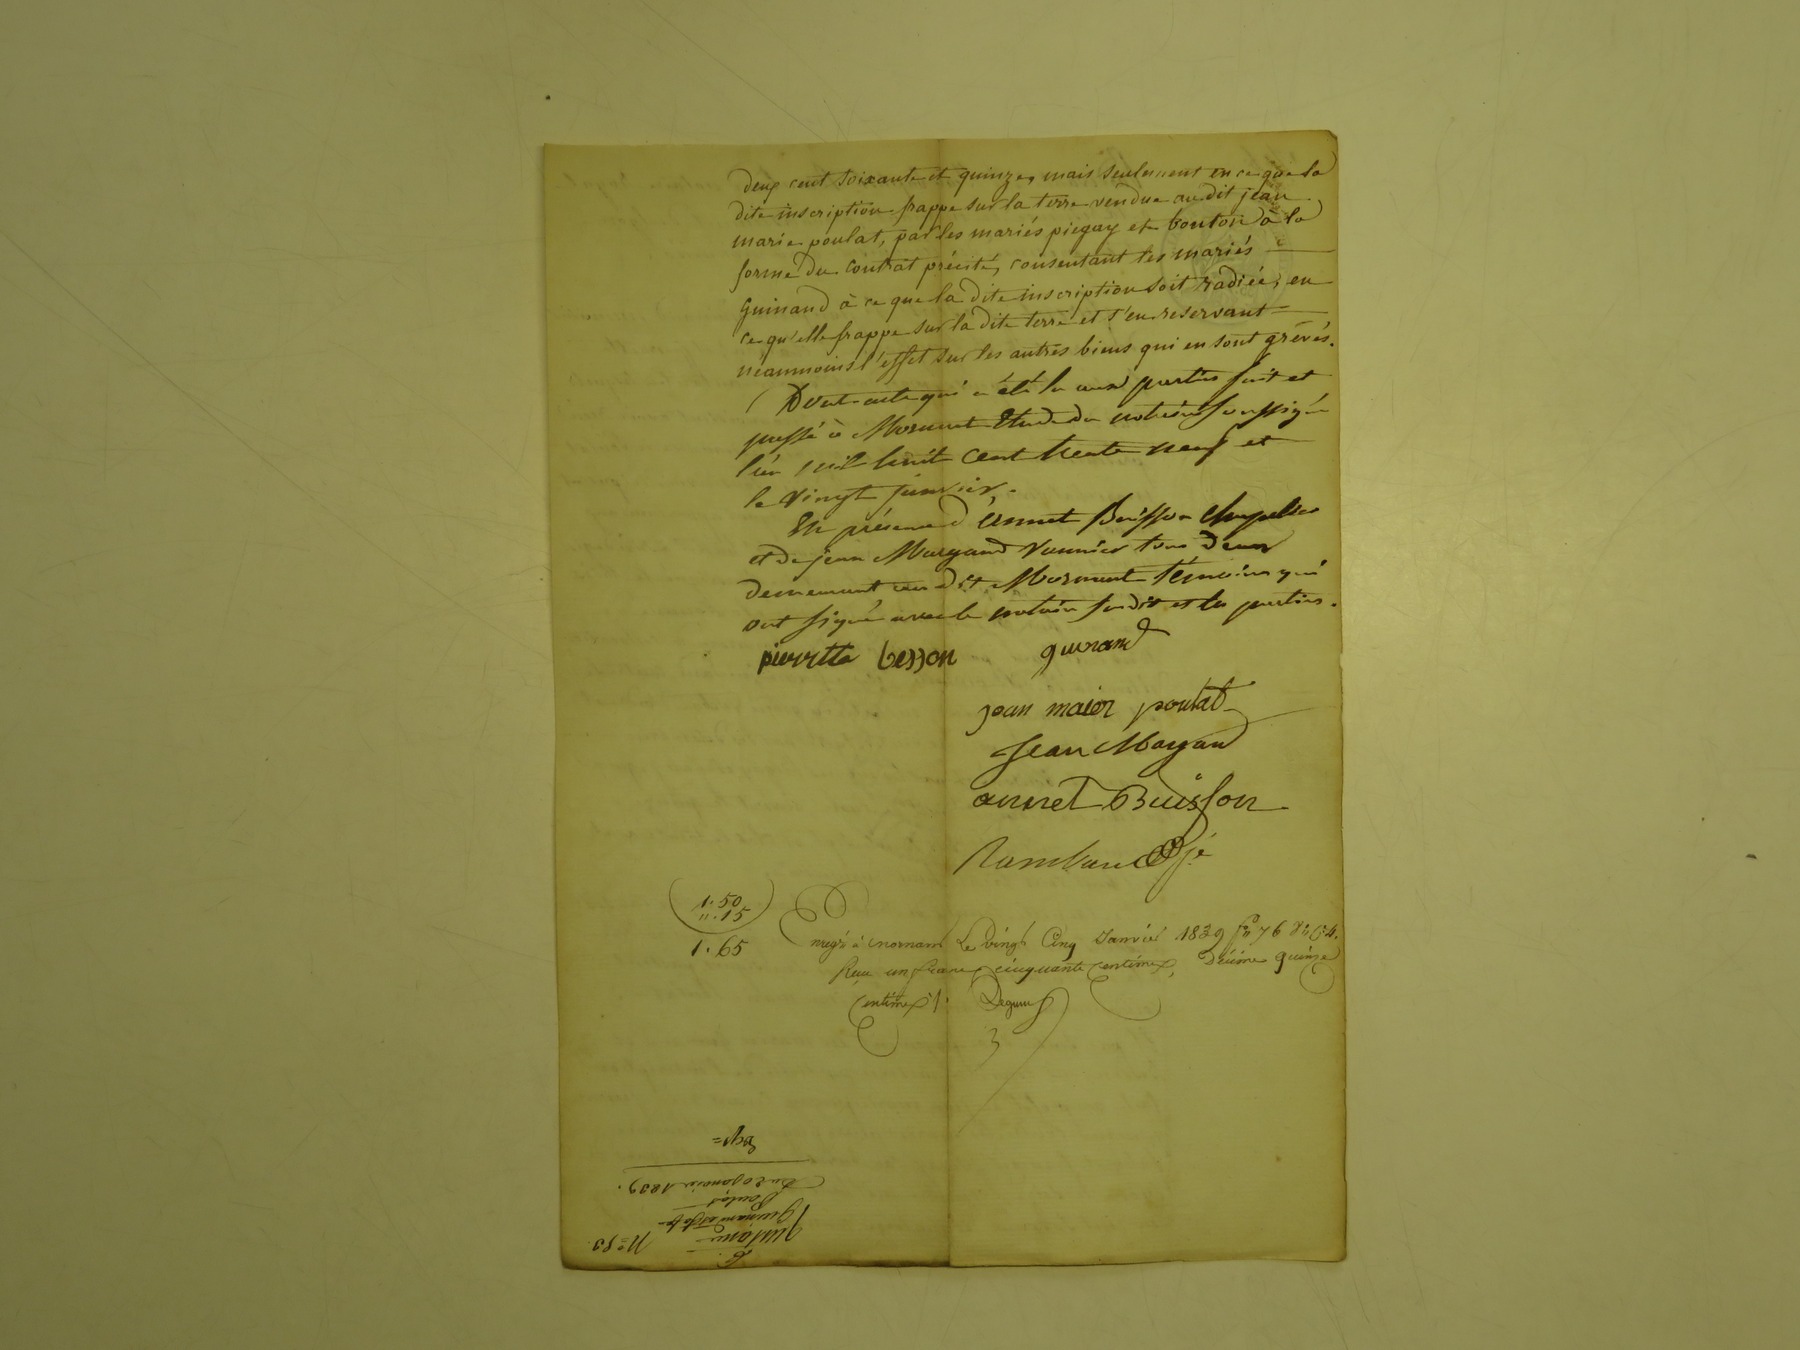 deux cent soixante et quinze, mais seulement en ce que la
dite inscription frappe sur la terre vendue au dit jean
marie poulat, par les mariés piegay et bouton à la
forme du contrat précité, consentant les mariés
Guinand à ce que la dite inscription soit radiée, en
ce qu'elle frappe sur la dite terre et s'en reservant
néanmoins l'effet sur les autres biens qui en sont grévés.
Dont acte qui a été lu aux parties fait et
passé à Mornant Etude du notaire soussigné
l'an mil huit cent trente neuf et
le vingt janvier.
En présence d'annet Buisson chapelier
et de jean Mayand vannier tous deux
demeurant au dit Mornant témoins qui
ont signé avec le notaire susdit et les parties.
pierrette besson guinand
jean maier poulat
Jean Mayand
annet Buisson
1. 50
". 15
1. 65
Enregé à mornant Le vingt Cinq Janvier 1839 fo 76 Vo C 4.
Reçu un franc cinquante Centimes, Décime quinze
Centimes.
No 83.
Quittance
Guinand et fe à
Poulat
Du 20 janvier 1839.
Exp =